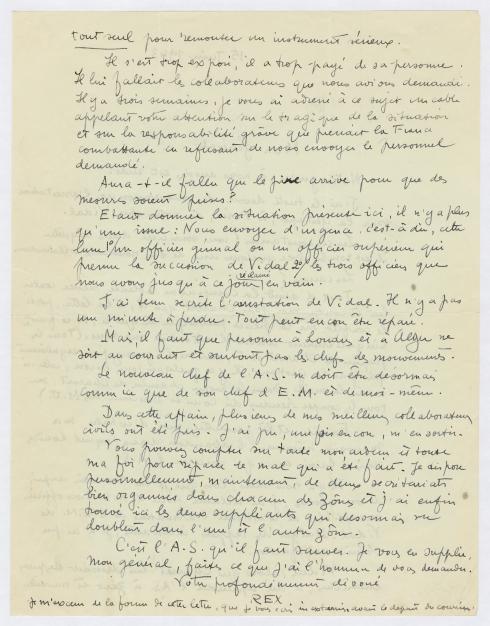 tout seul pour remonter un instrument sérieux.
Il s'est trop exposé, il a trop payé de sa personne.
Il lui fallait les collaborateurs que nous avions demandé.
Il y a trois semaines, je vous ai adressé à ce sujet un cable
appelant votre attention sur le tragique de la situation
et sur la responsabilité grave que prenait la France
combattante en refusant de nous envoyer le personnel
demandé.
Aura-t-il fallu que le pire arrive pour que des
mesures soient prises?
Etant donnée la situation présente ici, il n'y a plus
qu'une issue: Nous envoyer d'urgence, c'est-à-dire, cette
lune 1º/ un officier général ou un officier supérieur qui
prenne la succession de Vidal 2º/ les trois officiers que
nous avons jusqu'à ce jour réclamé en vain.
J'ai tenu secrète l'arrestation de Vidal. Il n'y a pas
une minute à perdre. Tout peut encore être réparé.
Mais, il faut que personne à Londres et à Alger ne
soit au courant et surtout pas les chefs de mouvements.
Le nouveau chef de l'A.S. ne doit être désormais
connu ici que de son chef d'E.M. et de moi-même.
Dans cette affaire, plusieurs de mes meilleurs collaborateurs
civils ont été pris. J'ai pu, une fois encore, m'en sortir.
Vous pouvez compter sur toute mon ardeur et toute
ma foi pour réparer le mal qui a été fait. Je dispose
personnellement, maintenant, de deux secrétariats
bien organisés dans chacune des zônes et j'ai enfin
trouvé ici les deux suppléants qui désormais me
doublent dans l'une et l'autre zône.
C'est l'A.S. qu'il faut sauver. Je vous en supplie,
mon général, faites ce que j'ai l'honneur de vous demander.
Votre profondément dévoué
REX
Je m'excuse de la forme de cette lettre, que je vous écris in extremis avant le départ du courrier.